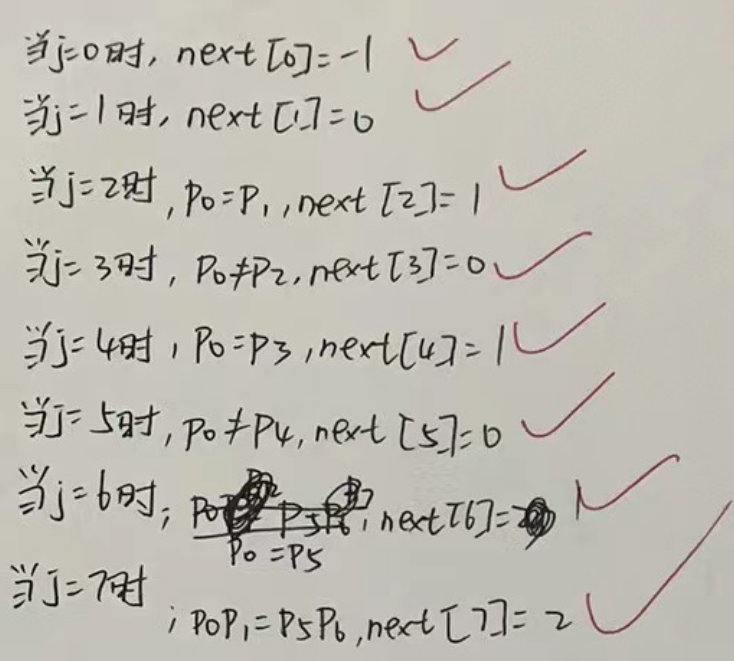 当j=0时, next[0]=-1
当j=1时, next[1]=0
当j=2时, P0=P1, next[2]=1
当j=3时, P0≠P2, next[3]=0
当j=4时, P0=P3, next[4]=1
当j=5时, P0≠P4, next[5]=0
当j=6时; next[6]=1
P0=P5
当j=7时
; P0P1=P5P6, next[7]=2